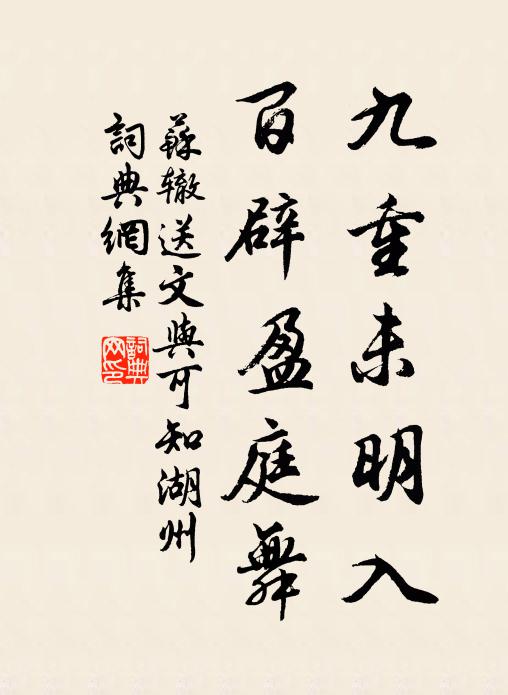 九重未明入
百辟盈庭舞
蘇辙送文與可知湖州
詞典網集
詞典网印